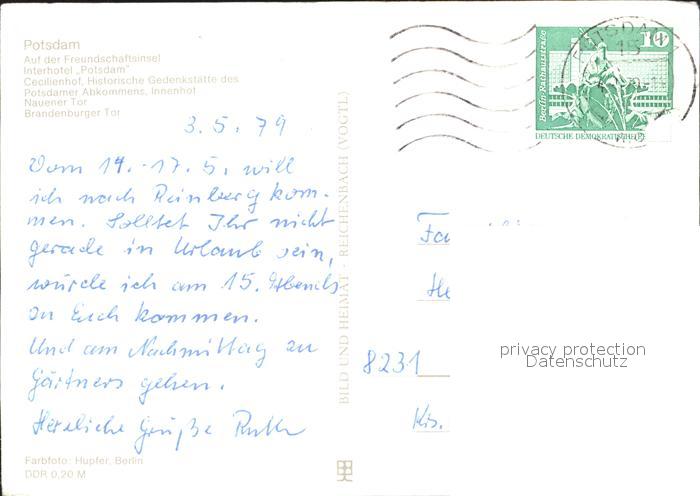 Potsdam
Auf der Freundschaftsinsel
Interhotel „Potsdam"
Cecilienhof, Historische Gedenkstätte des
Potsdamer Abkommens, Innenhof
Nauener Tor
Brandenburger Tor
3.5.79
Vom 14.-17.5. will
ich nach Reinberg kom-
men. Solltet Ihr nicht
gerade in Urlaub sein,
würde ich am 15. Abends
zu Euch kommen.
Und am Nachmittag zu
Gärtners gehen.
Herzliche Grüße Ruth
Farbfoto: Hupfer, Berlin
DDR 0,20 M
BILD UND HEIMAT · REICHENBACH (VOGTL)
10
Berlin, Rathausstraße
DEUTSCHE DEMOKRATISCHE
Fa
He
8231
Kis.
privacy protection
Datenschutz